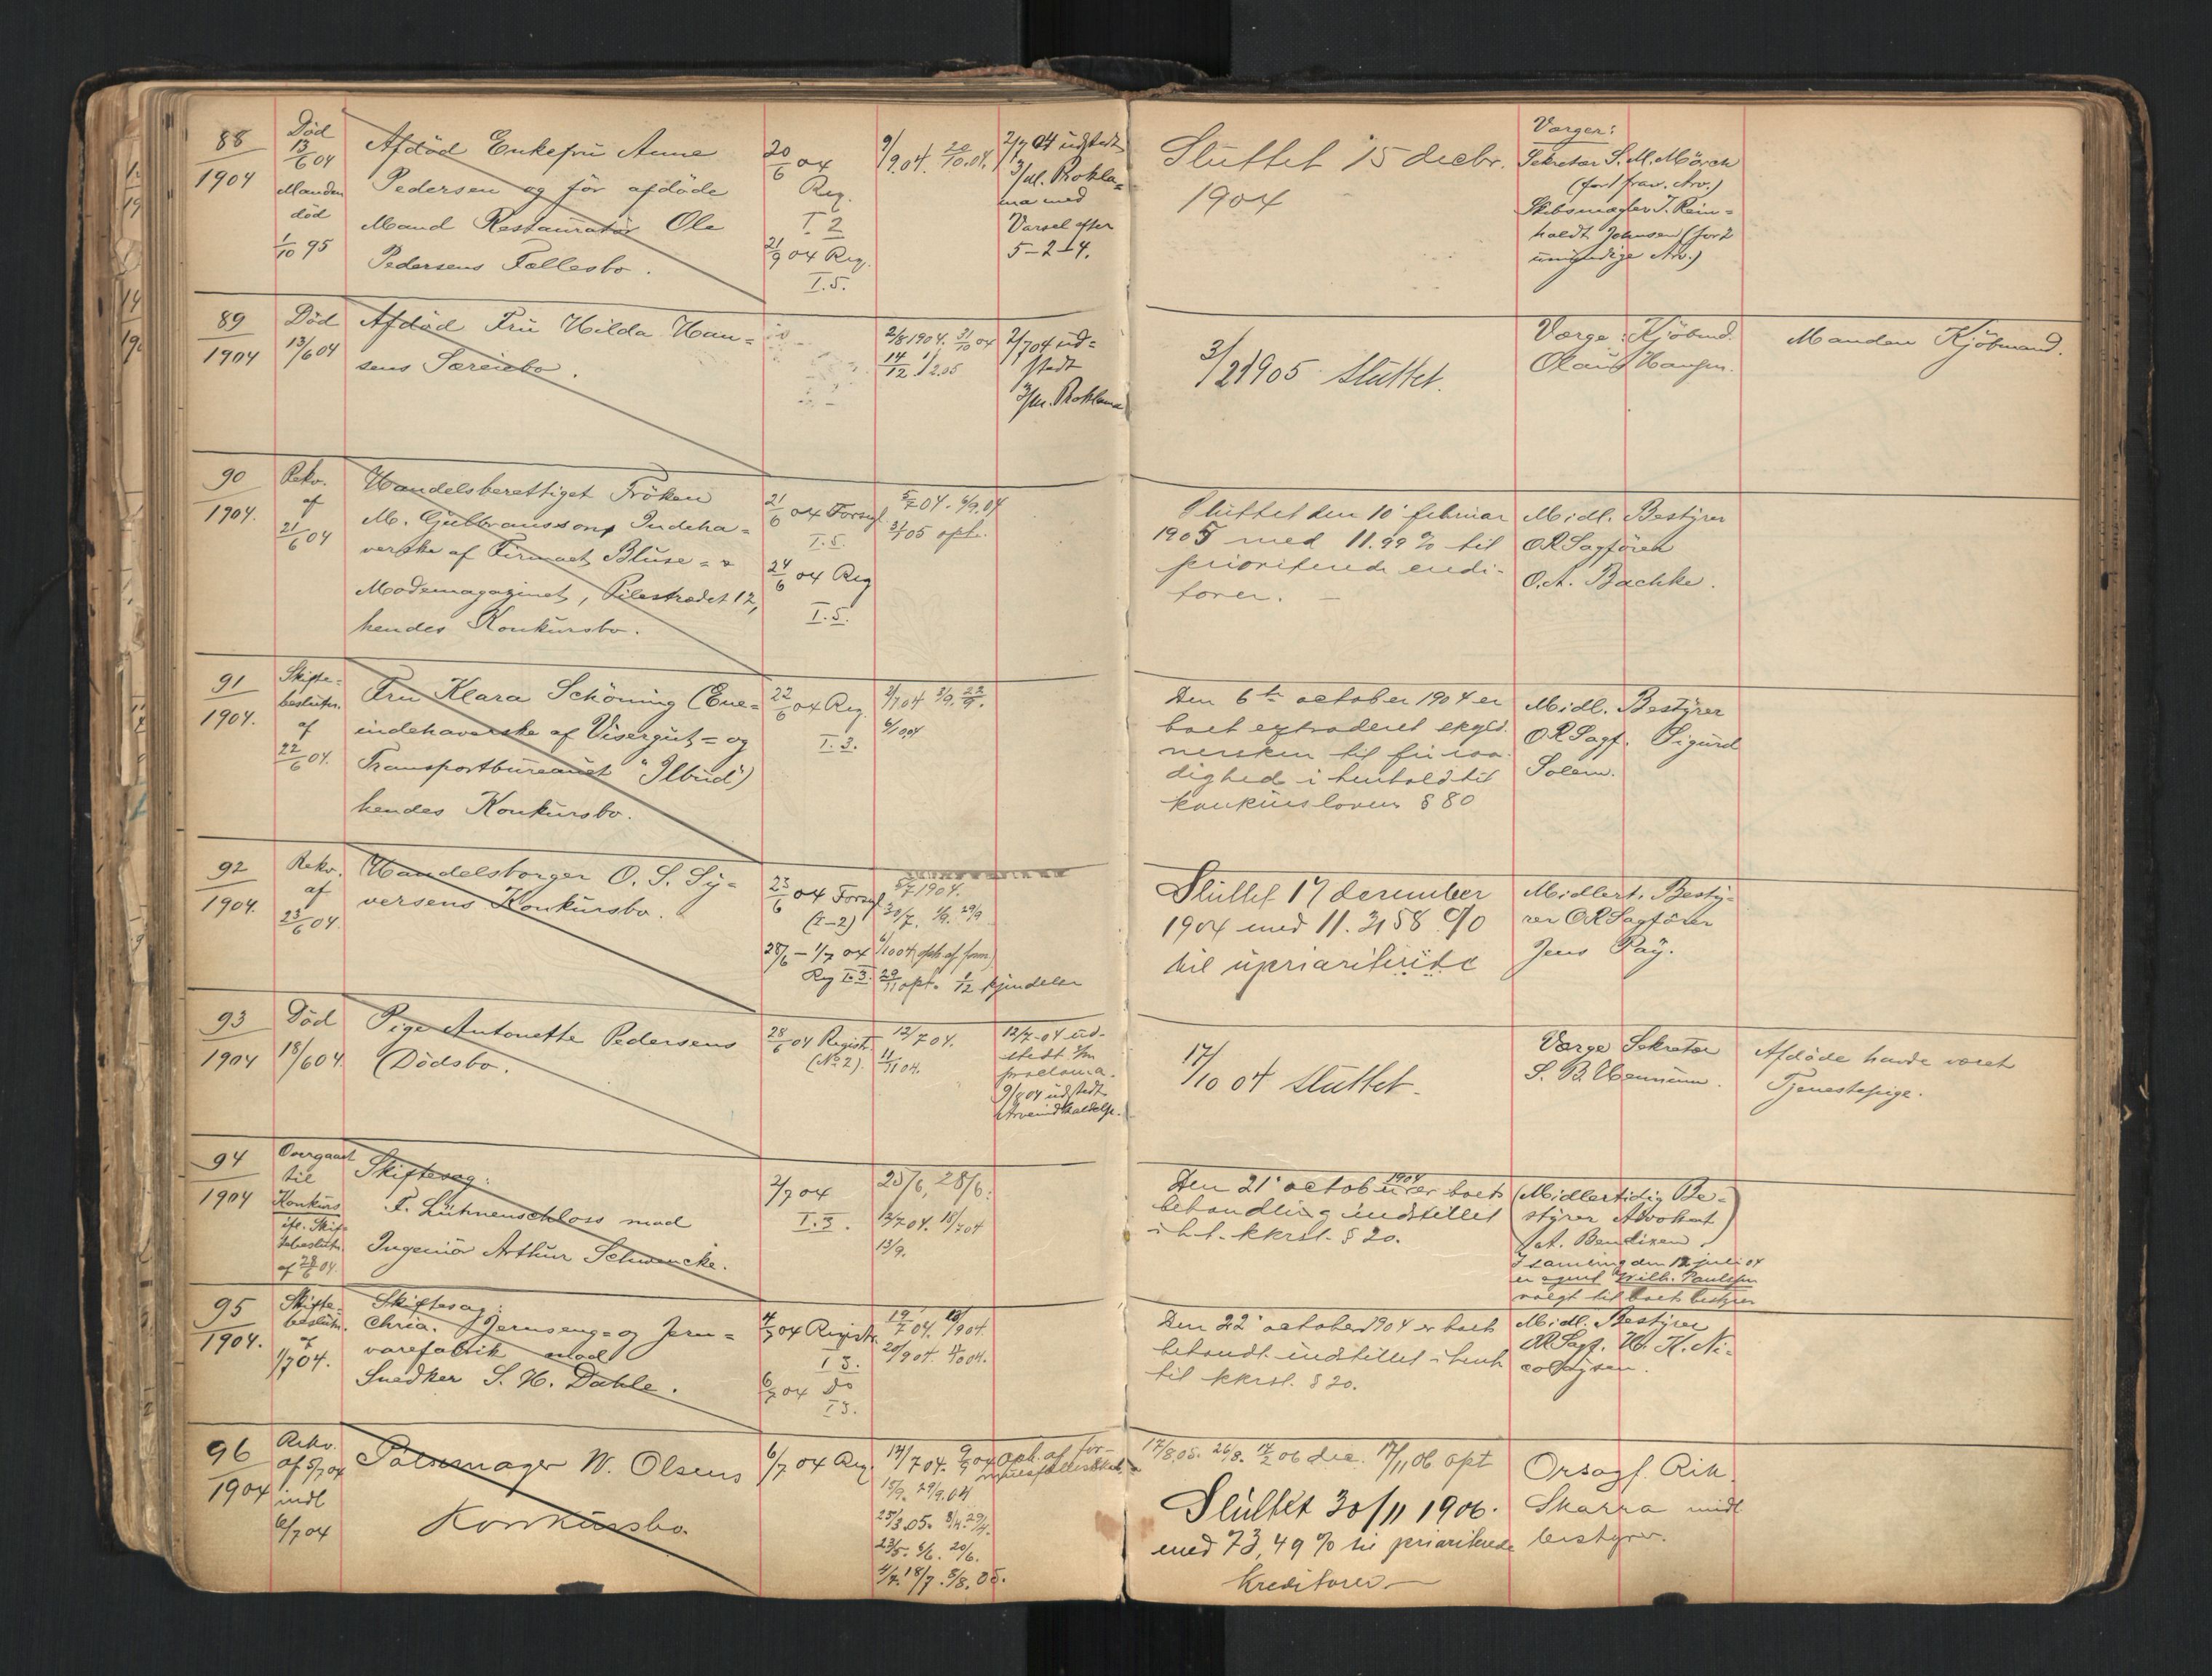 88
1904
Död
13/6 04
Manden
död
1/10 95
Afdöd Enkefru Anne
Pedersen og för afdöde
Mand Restauratör Ole
Pedersens Fællesbo.
20/6 04
Reg.
I. 2
21/9 04 Reg.
I. 5.
9/9.04. 20/10.04.
2/7 04 udstedt
3/M. Prokla=
ma med
Varsel efter
5-2-4.
Sluttet 15 decbr.
1904
Værger:
Sekretær S. M. Mörch
(for 1 frav. Arv.)
Skibsmægler J. Rein=
holdt Johnsen (for 2
umyndige Arv.)
89
1904
Död
13/6 04
Afdöd Fru Hilda Han=
sens Særeiebo.
2/8 1904. 31/10 04
14/12 1/2.05
2/7 04 ud=
stedt
3/M. Proklama
3/2 1905 sluttet.
Værge: Kjöbmd.
Olaus Hansen.
Manden Kjöbmand.
90
1904.
Rekv.
af
21/6 04
Handelsberettiget Fröken
M. Gulbranssons Indeha=
verske af Firmaet Bluse= &
Modemagazinet, Pilestrædet 12,
hendes Konkursbo.
21/6 04 Forsegl.
I. 5.
24/6 04 Reg
I. 5.
5/7 04. 6/9.04
31/1 05 opt.
Sluttet den 10' februar
1905 med 11.99 % til
prioriterede credi-
torer. —
Midl. Bestyrer
ORSagfören
O. A. Bachke.
91
1904.
Skifte=
beslutn.
af
22/6 04.
Fru Klara Schöning (Ene=
indehaverske af Visergut= og
Transportbureauet "Ilbud")
hendes Konkursbo.
22/6 04 Reg.
I. 3.
2/7 04 3/9. 22/9.
6/10 04
Den 6te october 1904 er
boet extraderet skyld.
nersken til fri raa-
dighed i henhold til
konkursloven § 80
Midl. Bestyrer
ORSagf. Sigurd
Solem.
92
1904.
Rekv.
af
23/6 04.
Handelsborger O. S. Sy=
versens Konkursbo.
23/6 04 Forsegl.
(I-2)
28/6 - 1/7 04
Reg I 3.
5/7 1904.
30/7. 1/9. 29/9
6/10 04 (oph. af form)
29/11 opt. 1/12 kjendelse
Sluttet 17 desember
1904 med 11.2158 %
til uprioriterede
Midlert. Besty=
rer ORSagförer
Jens Pay.
93
1904
Död
18/6 04.
Pige Antonette Pedersens
(Dödsbo.
28/6 04 Registr.
(No 2).
12/7 04.
11/11 04.
12/7-04 ud-
stedt
proclama.
9/8 04 udstedt
Arveindkaldelse.
17/10 04 sluttet.
Værge Sekretær
S. B. Hennum.
Afdöde havde været
Tjenestepige.
94
1904
Overgaaet
til
Konkurs
ifl. Skif=
tebeslutn.
af 28/6 04.
Skiftesag:
F. Lühnenschloss mod
Ingeniör Arthur Schwencke.
2/7 04
I. 3.
25/6, 28/6.
12/7 04. 18/7 04
13/9.
Den 21' october 1904 er boets
behandling indstillet
i h. t. kkrsl. § 20.
(Midlertidig Be=
styrer Advokat)
Bendixen
I samling den 12 juli 04
er agent Wilh. Paulsen
valgt til boets bestyrer
95
1904.
Skifte=
beslutn.
af
1/7 04.
Skiftesag:
Chria. Jernseng= og Jern=
varefabrik mod
Snedker S. H. Dahle.
4/7 04 Registr.
I 3.
6/7 04 Do
I 3.
19/7 04. 13/9 04.
20/9 04. 4/10 04.
Den 22' october 1904 er boets
behandl. indstillet i henh
til kkrsl. § 20.
Midl. Bestyrer
ORSagf. H. H. Ni=
colaysen.
96
1904
Rekv.
af 5/7 04
indl
6/7 04
Pölsemager W. Olsens
Konkursbo.
6/7 04 Reg.
14/7 04. 9/9 04 oph. af for-
15/9. 29/9.04
25/3.05. 8/4. 29/4.
23/5. 6/6. 20/6.
4/7. 18/7. 8/8. 05.
17/8.05. 26/8. 14/2 06 dec. 17/11 06 opt
Sluttet 30/11 1906.
med 73,49 % til prioriterede
Kreditorer —
Orsagf. Rik.
Skarra midl
bestyrer.